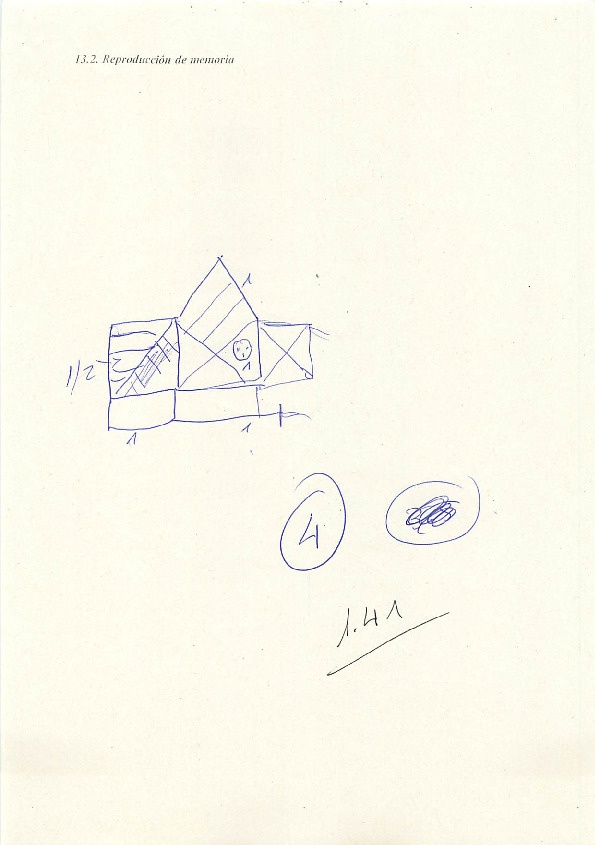 13.2. Reproducción de memoria
1
1
1/2
1
1
4
1.41